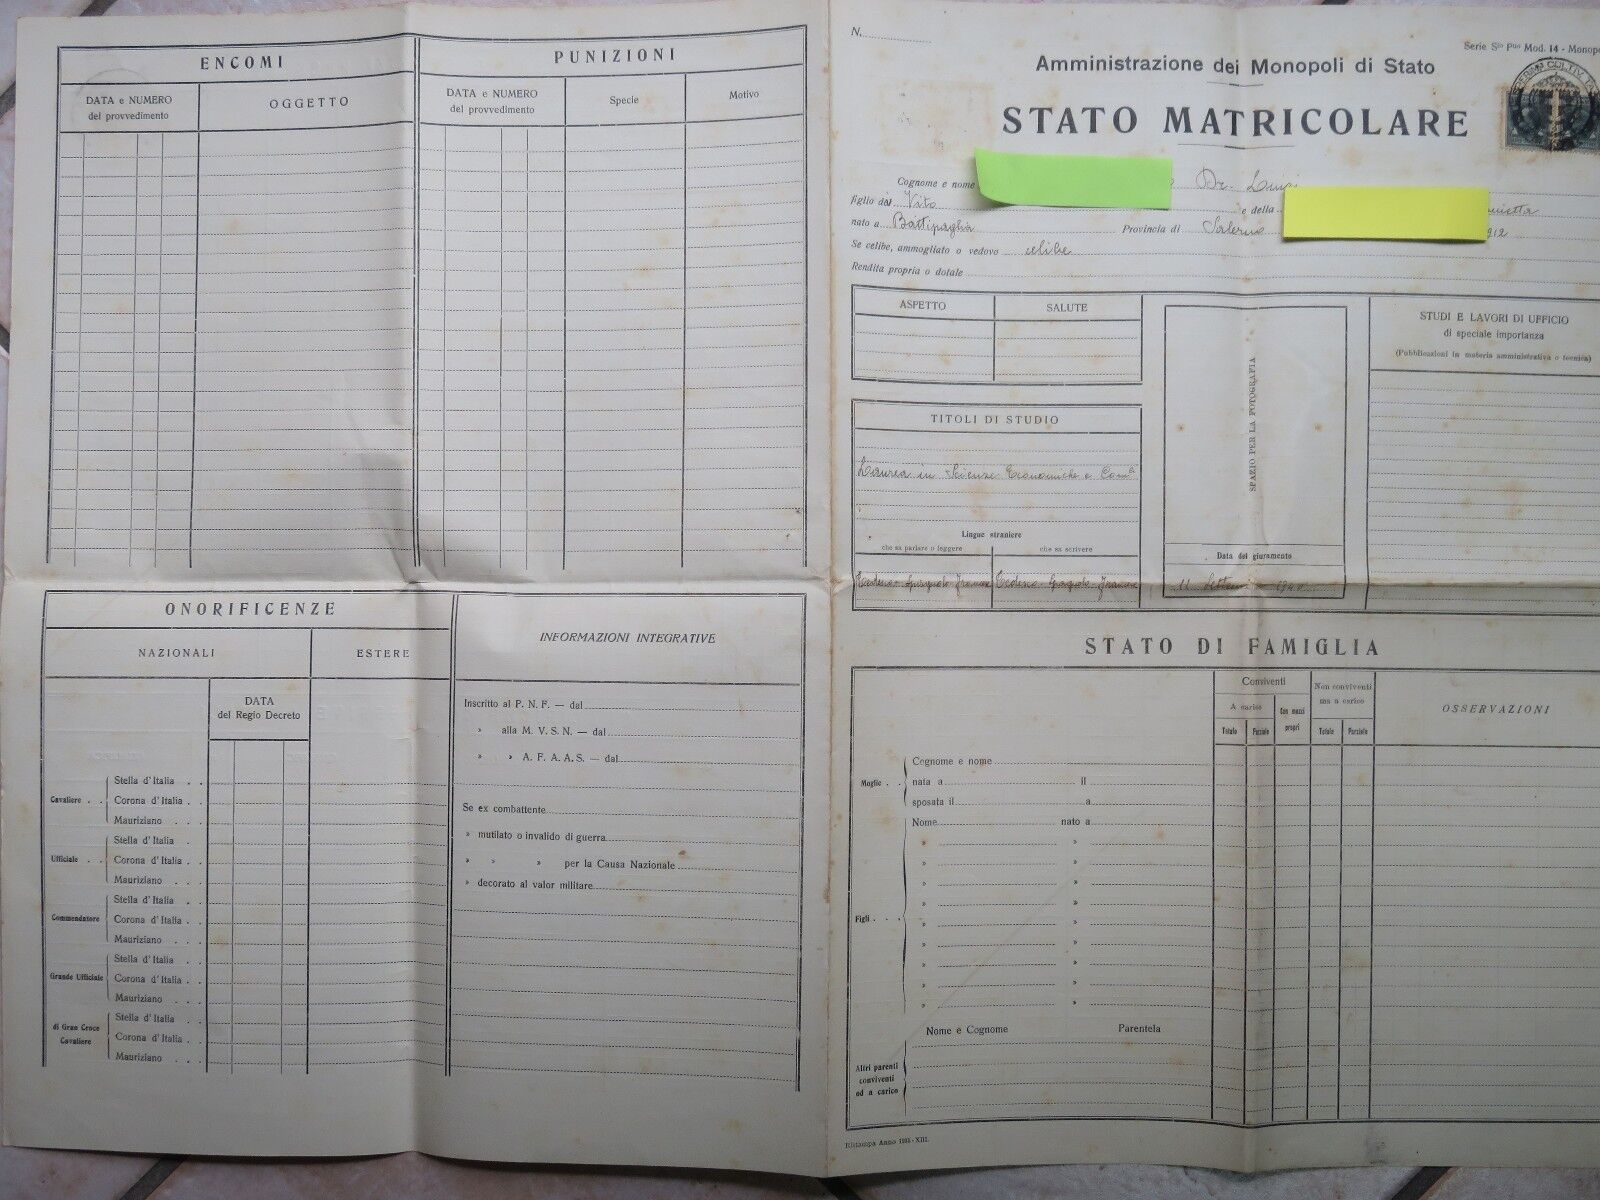 ENCOMI
DATA e NUMERO
del provvedimento
OGGETTO
PUNIZIONI
DATA e NUMERO
del provvedimento
Specie
Motivo
ONORIFICENZE
NAZIONALI
ESTERE
DATA
del Regio Decreto
Cavaliere . .
Stella d'Italia . .
Corona d'Italia . .
Mauriziano . . .
Ufficiale . .
Stella d'Italia . .
Corona d'Italia . .
Mauriziano . . .
Commendatore
Stella d'Italia . .
Corona d'Italia . .
Mauriziano . . .
Grande Ufficiale
Stella d'Italia . .
Corona d'Italia . .
Mauriziano . . .
di Gran Croce
Cavaliere
Stella d'Italia . .
Corona d'Italia . .
Mauriziano . . .
INFORMAZIONI INTEGRATIVE
Inscritto al P. N. F. — dal
» alla M. V. S. N. — dal
» » A. F. A. A. S. — dal
Se ex combattente
» mutilato o invalido di guerra
» » » per la Causa Nazionale
» decorato al valor militare
N.
Serie Sta Pne Mod. 14 - Monop
Amministrazione dei Monopoli di Stato
STATO MATRICOLARE
Cognome e nome Dr. Luigi
figlio del Vito e della
nato a Battipaglia Provincia di Salerno 912
Se celibe, ammogliato o vedovo celibe
Rendita propria o dotale
ASPETTO
SALUTE
TITOLI DI STUDIO
Laurea in Scienze Economiche e Com
Lingue straniere
che sa parlare o leggere
che sa scrivere
Tedesco Spagnolo Francese
Tedesco Spagnolo Francese
SPAZIO PER LA FOTOGRAFIA
Data del giuramento
11 Settem 1940
STUDI E LAVORI DI UFFICIO
di speciale importanza
(Pubblicazioni in materia amministrativa o tecnica)
STATO DI FAMIGLIA
Conviventi
A carico
Totale
Parziale
Con mezzi
propri
Non conviventi
ma a carico
Totale
Parziale
OSSERVAZIONI
Moglie . .
Cognome e nome
nata a il
sposata il a
Figli . . .
Nome nato a
» »
» »
» »
» »
» »
» »
» »
» »
» »
Nome e Cognome Parentela
Altri parenti
conviventi
od a carico
Ristampa Anno 1935-XIII.